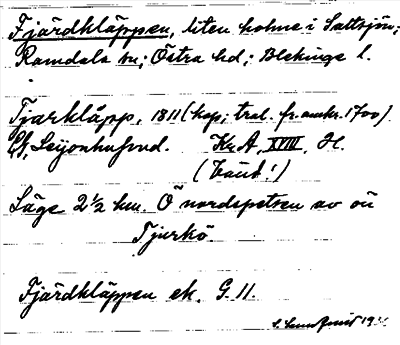 Fjärdkläppen, liten holme i Saltsjön;
Ramdala sn; Östra hd; Blekinge l.
Tjarkläpp, 1811 (kop; trol. fr. omkr. 1700)
Leijonhufvud. Kr. A, XVIII, H.
Läge 2½ km. Ö nordspetsen av ön
Tjurkö
Fjärdkläppen ek. G. 11.